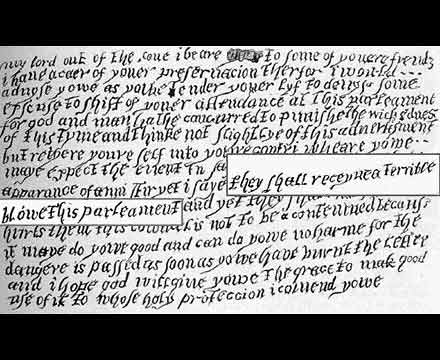 my lord out of the love i beare to some of youere frends
i have a caer of youer preservacion therfor i would
advyse yowe as yowe tender youer lyf to devyse some
exscuse to shift of youer attendance at this parleament
for god and man hathe concurred to punishe the wickednes
of this tyme and thinke not slightlye of this advertisment
but retiere youre self into youre contri wheare yowe
maye expect the event in
they shall receyve a terrible
apparance of anni stir yet i saye
blowe this parleament and yet they
hurts them this councel is not to be contemned becaus
it maye do yowe good and can do yowe no harme for the
dangere is passed as soon as yowe have burnt the letter
and i hope god will give yowe the grace to mak good
use of it to whose holy proteccion i comend yowe